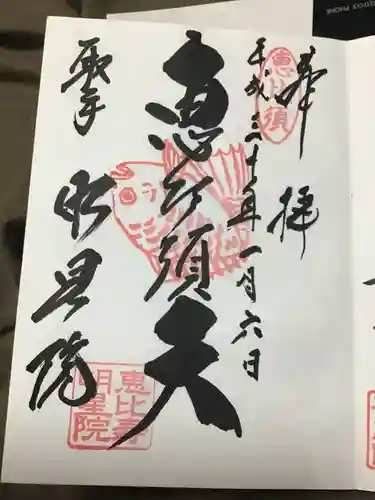 QUOS PHONE
奉拝
恵比須
平成三十年一月六日
恵比須天
取手
明星院
恵比寿
明星院